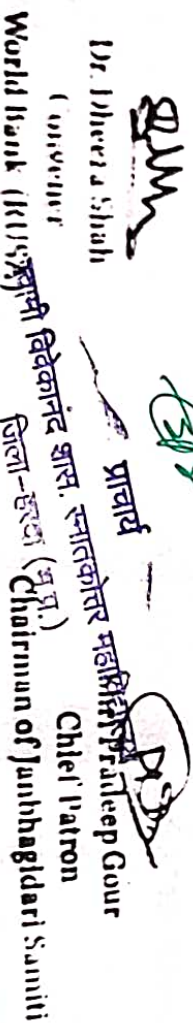 Dr. Dheera Shah
Convener
World Bank
प्राचार्य
स्वामी विवेकानंद शास. स्नातकोत्तर महाविद्यालय
जिला-हरदा (म.प्र.)
Pradeep Gour
Chief Patron
Chairman of Janbhagidari Samiti